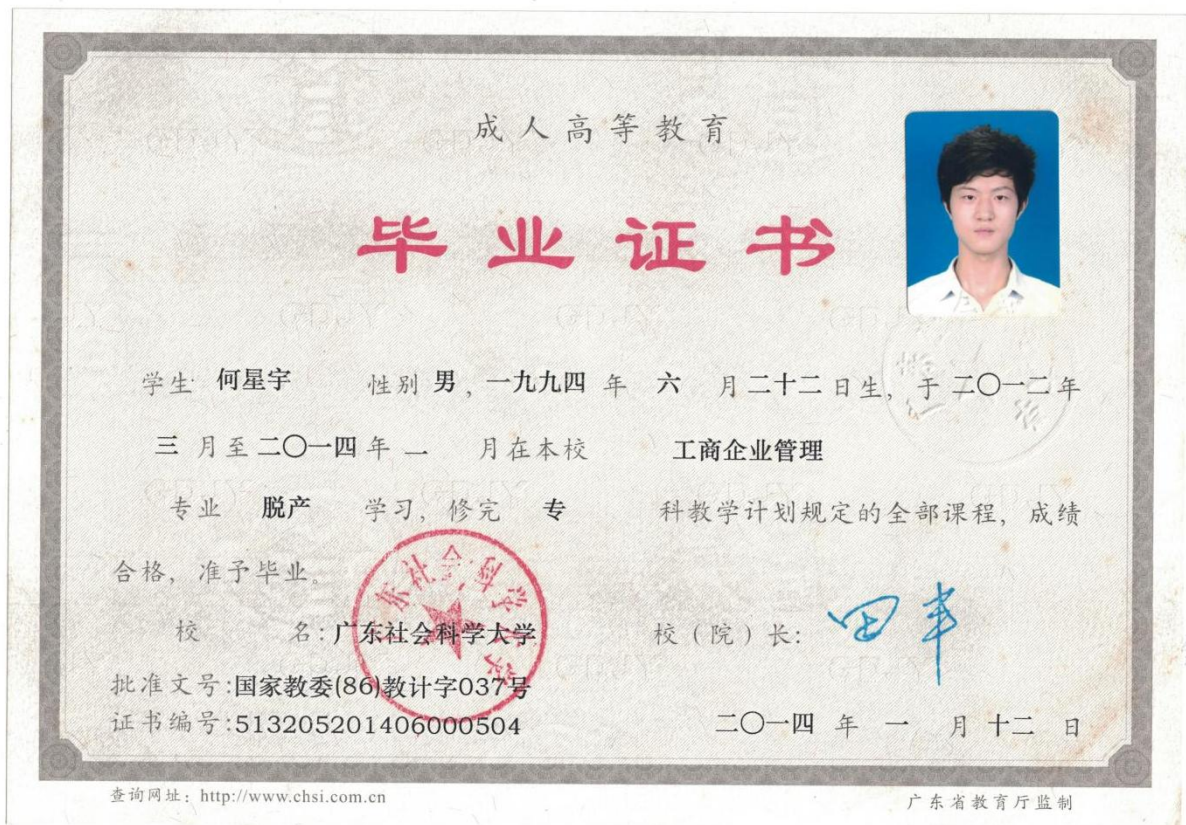 成人高等教育
毕业证书
学生 何星宇 性别 男，一九九四 年 六 月二十二日生，于二〇一二年
三 月至二〇一四年 一 月在本校 工商企业管理
专业 脱产 学习，修完 专 科教学计划规定的全部课程，成绩
合格，准予毕业。
校 名：广东社会科学大学 校（院）长：田丰
批准文号:国家教委(86)教计字037号
证书编号:513205201406000504 二〇一四 年 一 月 十二 日
查询网址：http://www.chsi.com.cn 广东省教育厅监制